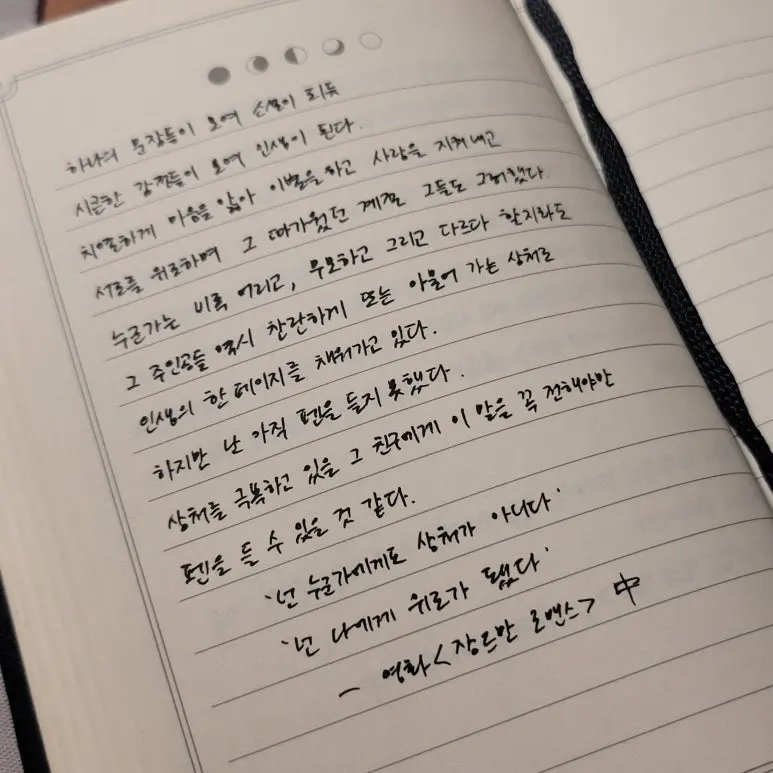 하나의 문장들이 모여 소설이 되듯
시큰한 감정들이 모여 인생이 된다.
치열하게 마음을 앓아 이별을 하고 사랑을 지켜내고
서로를 위로하며 그 따가웠던 계절 그들도 그러했다.
누군가는 비록 어리고, 무모하고 그리고 다르다 할지라도
그 주인공들 역시 찬란하게 또는 아물어 가는 상처로
인생의 한 페이지를 채워가고 있다.
하지만 난 아직 펜을 들지 못했다.
상처를 극복하고 있을 그 친구에게 이 말을 꼭 전해야만
펜을 들 수 있을 것 같다.
'넌 누군가에게도 상처가 아니다'
'넌 나에게 위로가 됐다'
- 영화 <장르만 로맨스> 中